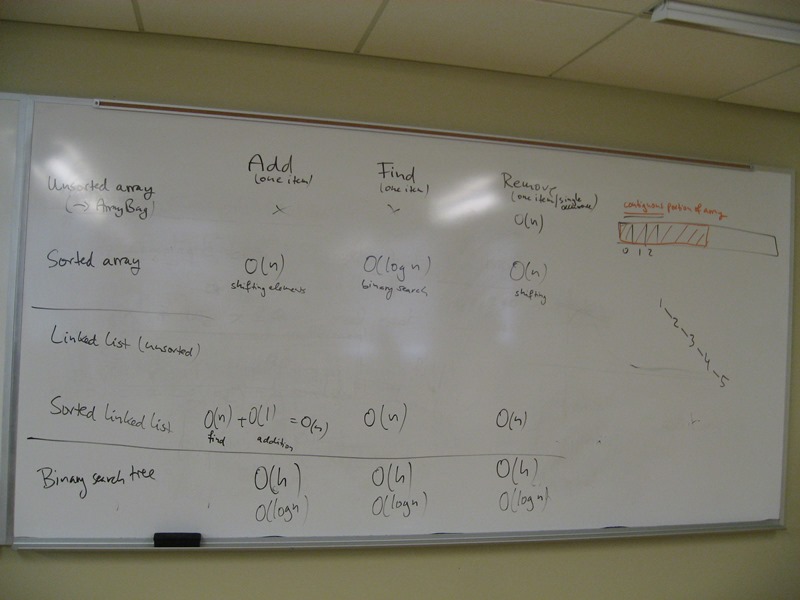 Add Find Remove
(one item) (one item) (one item/single
Unsorted array
(→ ArrayBag) O(n)
contiguous portion of array
0 1 2
Sorted array O(n) O(log n) O(n)
shifting elements binary search shifting
Linked list (unsorted)
1-2-3-4-5
Sorted linked list O(n) + O(1) = O(n) O(n) O(n)
find addition
Binary search tree O(h) O(h) O(h)
O(log n) O(log n) O(log n)